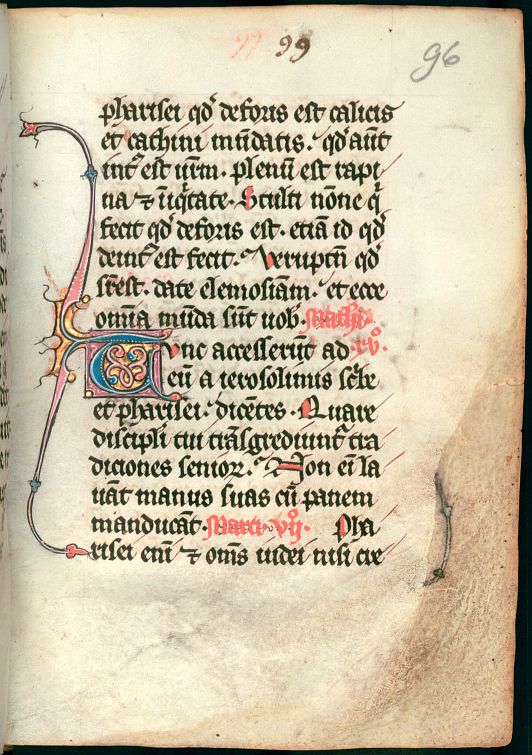 99
96
pharisei qd̾ deforis est calicis
et cachini mūdatis. qd̾ aūt
int᷒ est ur̄m. plenū est rapi
na ⁊ iniq̄tate. Stulti nōne q̄
fecit qd̾ deforis est. etiā id qd̾
deint᷒ est fecit. Verūptn̄ qd̾
sr̄est. date elemosiam. et ecce
omnia mūda sūt uob̾. Mathi.
Tunc accesserūt ad xvͦ.
eū a ierosolimis sc̄be
et pharisei. dicētes. Quare
discipli tui trāsgrediunt᷒ tra
diciones senior̄. Non ei̅ la
uāt manus suas cū panem
manducāt. Marci. vijͦ. Pha
risei eni̅ ⁊ om̄s iudei nisi cre